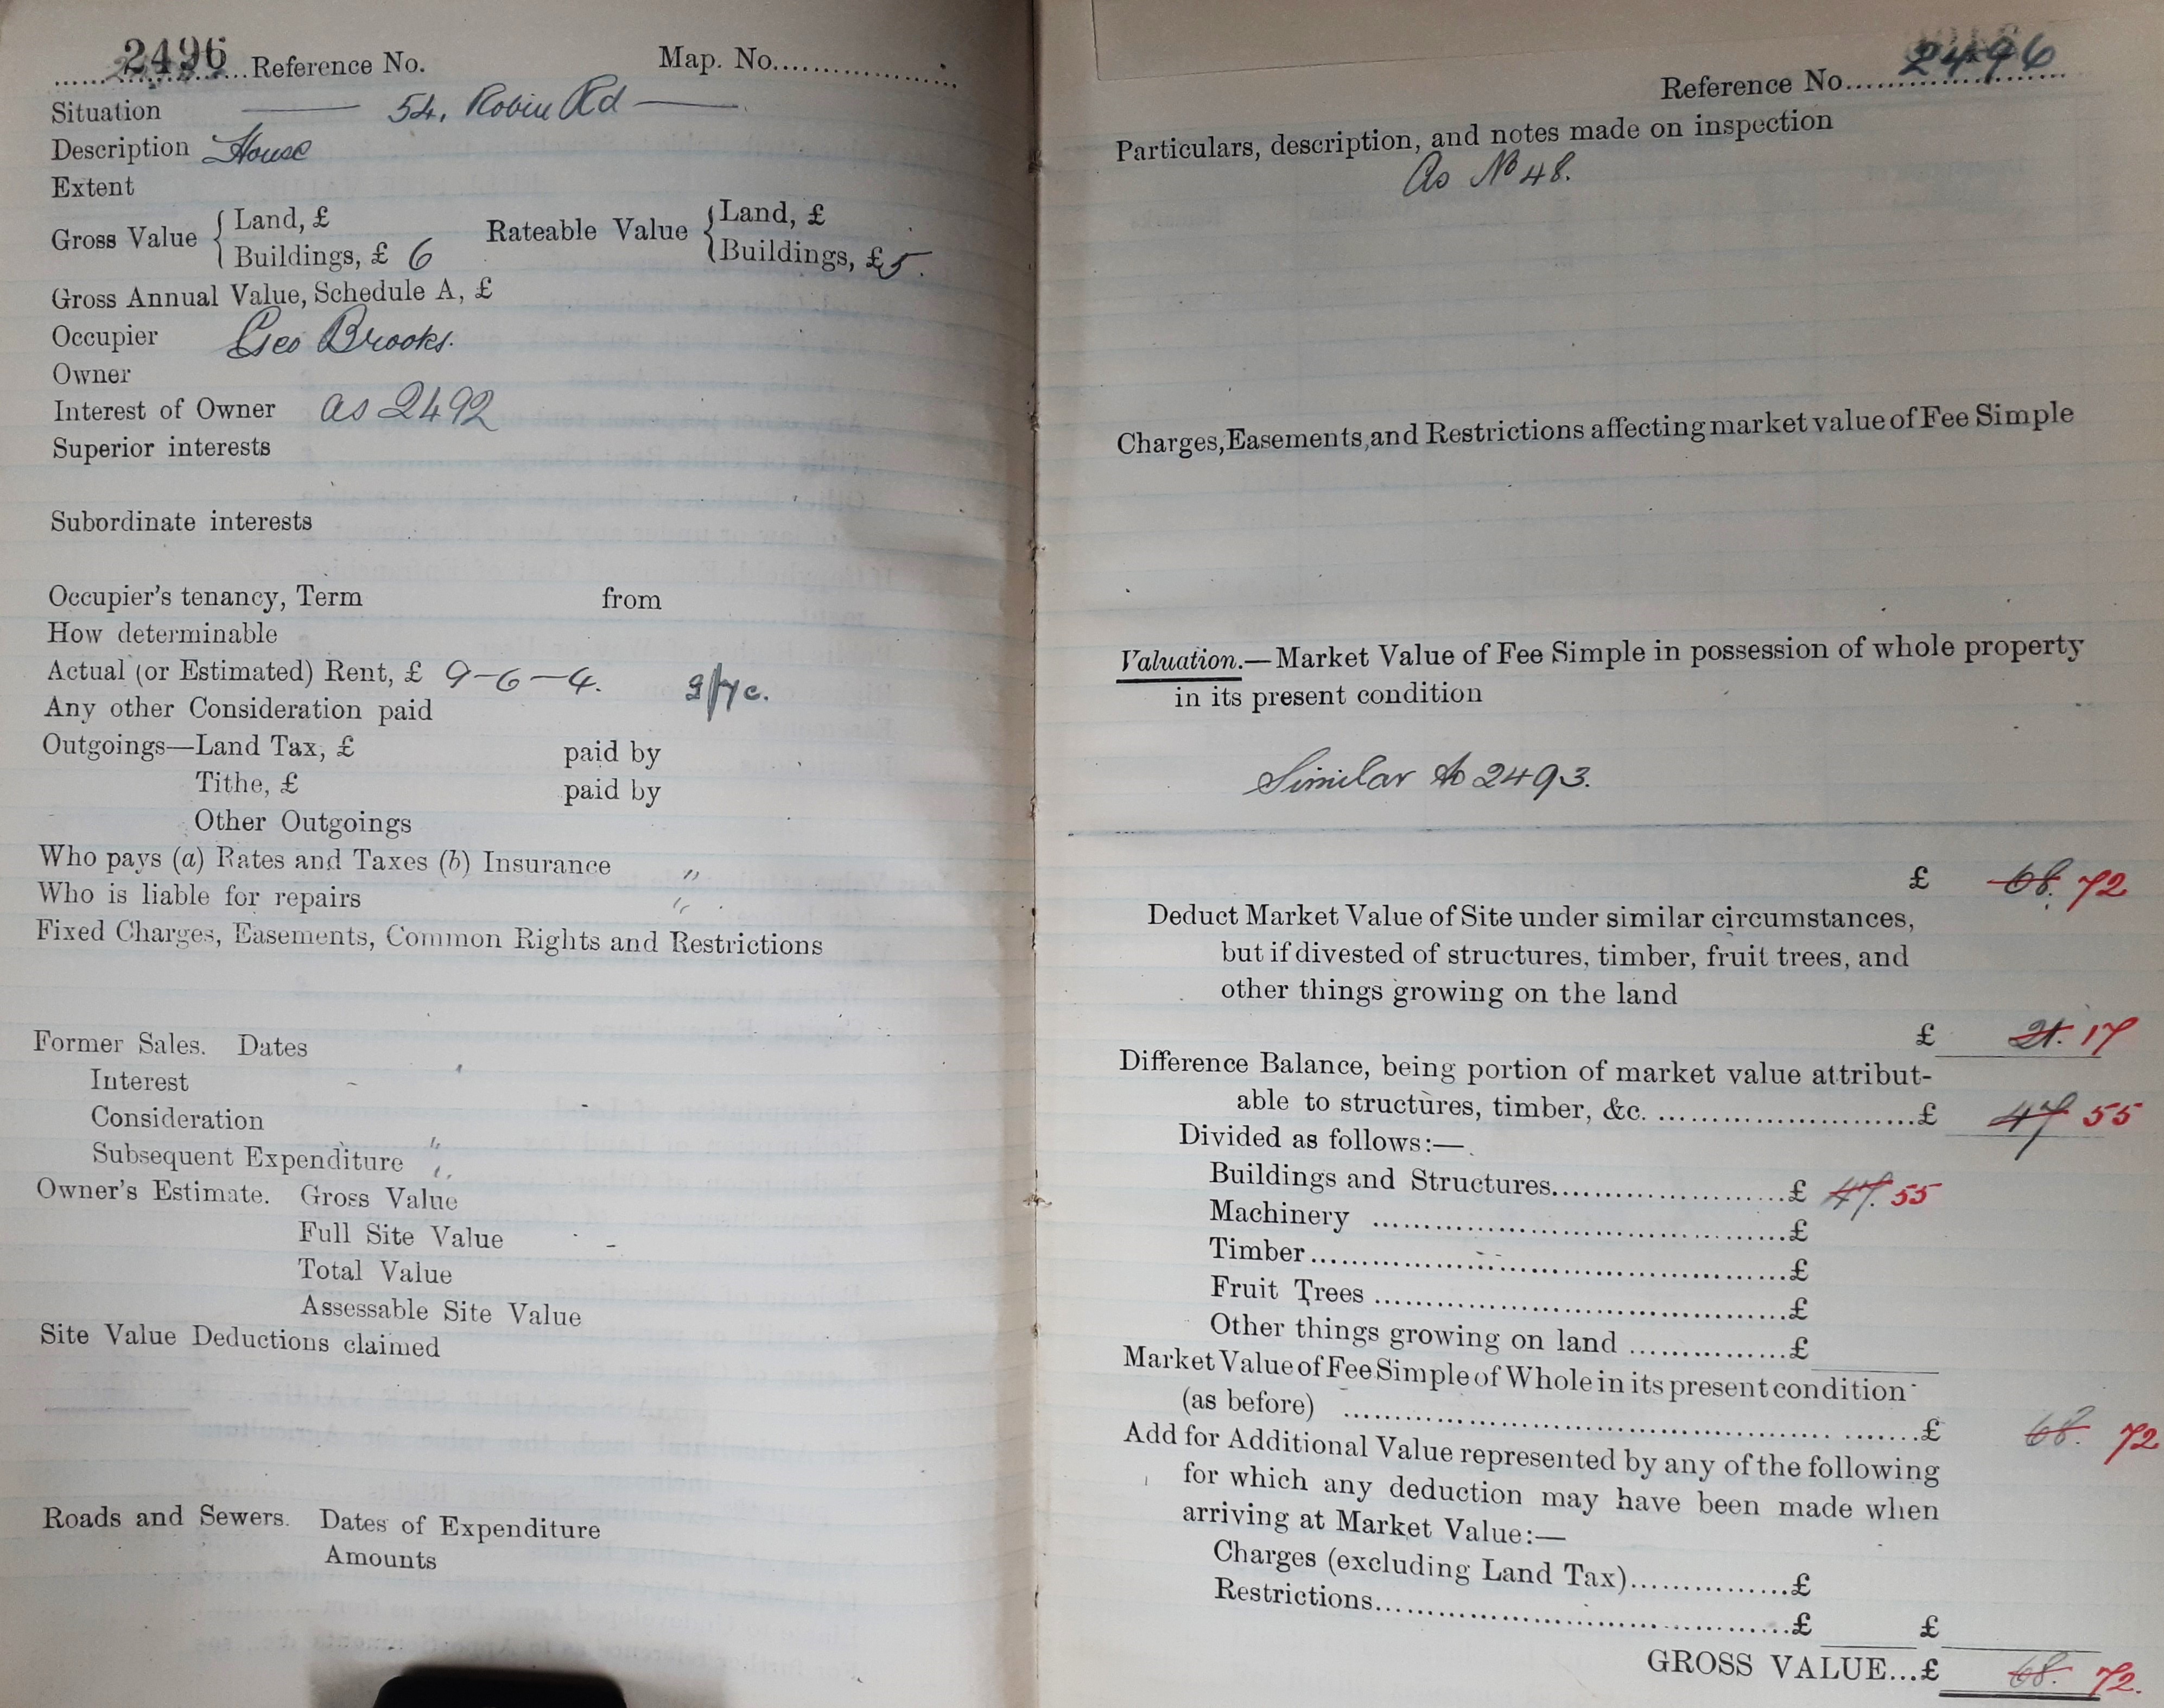 2496 Reference No. Map. No.
Situation — 54, Robin Rd —
Description House
Extent
Gross Value { Land, £ Rateable Value { Land, £
Buildings, £ 6 Buildings, £ 5.
Gross Annual Value, Schedule A, £
Occupier Geo Brooks.
Owner
Interest of Owner as 2492
Superior interests
Subordinate interests
Occupier's tenancy, Term from
How determinable
Actual (or Estimated) Rent, £ 9-6-4.
Any other Consideration paid
Outgoings—Land Tax, £ paid by
Tithe, £ paid by
Other Outgoings
Who pays (a) Rates and Taxes (b) Insurance "
Who is liable for repairs "
Fixed Charges, Easements, Common Rights and Restrictions
Former Sales. Dates
Interest
Consideration
Subsequent Expenditure
Owner's Estimate. Gross Value
Full Site Value
Total Value
Assessable Site Value
Site Value Deductions claimed
Roads and Sewers. Dates of Expenditure
Amounts
Reference No. 2496
Particulars, description, and notes made on inspection
As No 48.
Charges, Easements, and Restrictions affecting market value of Fee Simple
Valuation.—Market Value of Fee Simple in possession of whole property
in its present condition
Similar to 2493.
£ 68. 72
Deduct Market Value of Site under similar circumstances,
but if divested of structures, timber, fruit trees, and
other things growing on the land
£ 21. 17
Difference Balance, being portion of market value attribut-
able to structures, timber, &c. £ 47 55
Divided as follows:—
Buildings and Structures £ 47. 55
Machinery £
Timber £
Fruit Trees £
Other things growing on land £
Market Value of Fee Simple of Whole in its present condition
(as before) £ 68. 72
Add for Additional Value represented by any of the following
for which any deduction may have been made when
arriving at Market Value:—
Charges (excluding Land Tax) £
Restrictions £ £
GROSS VALUE...£ 68. 72.